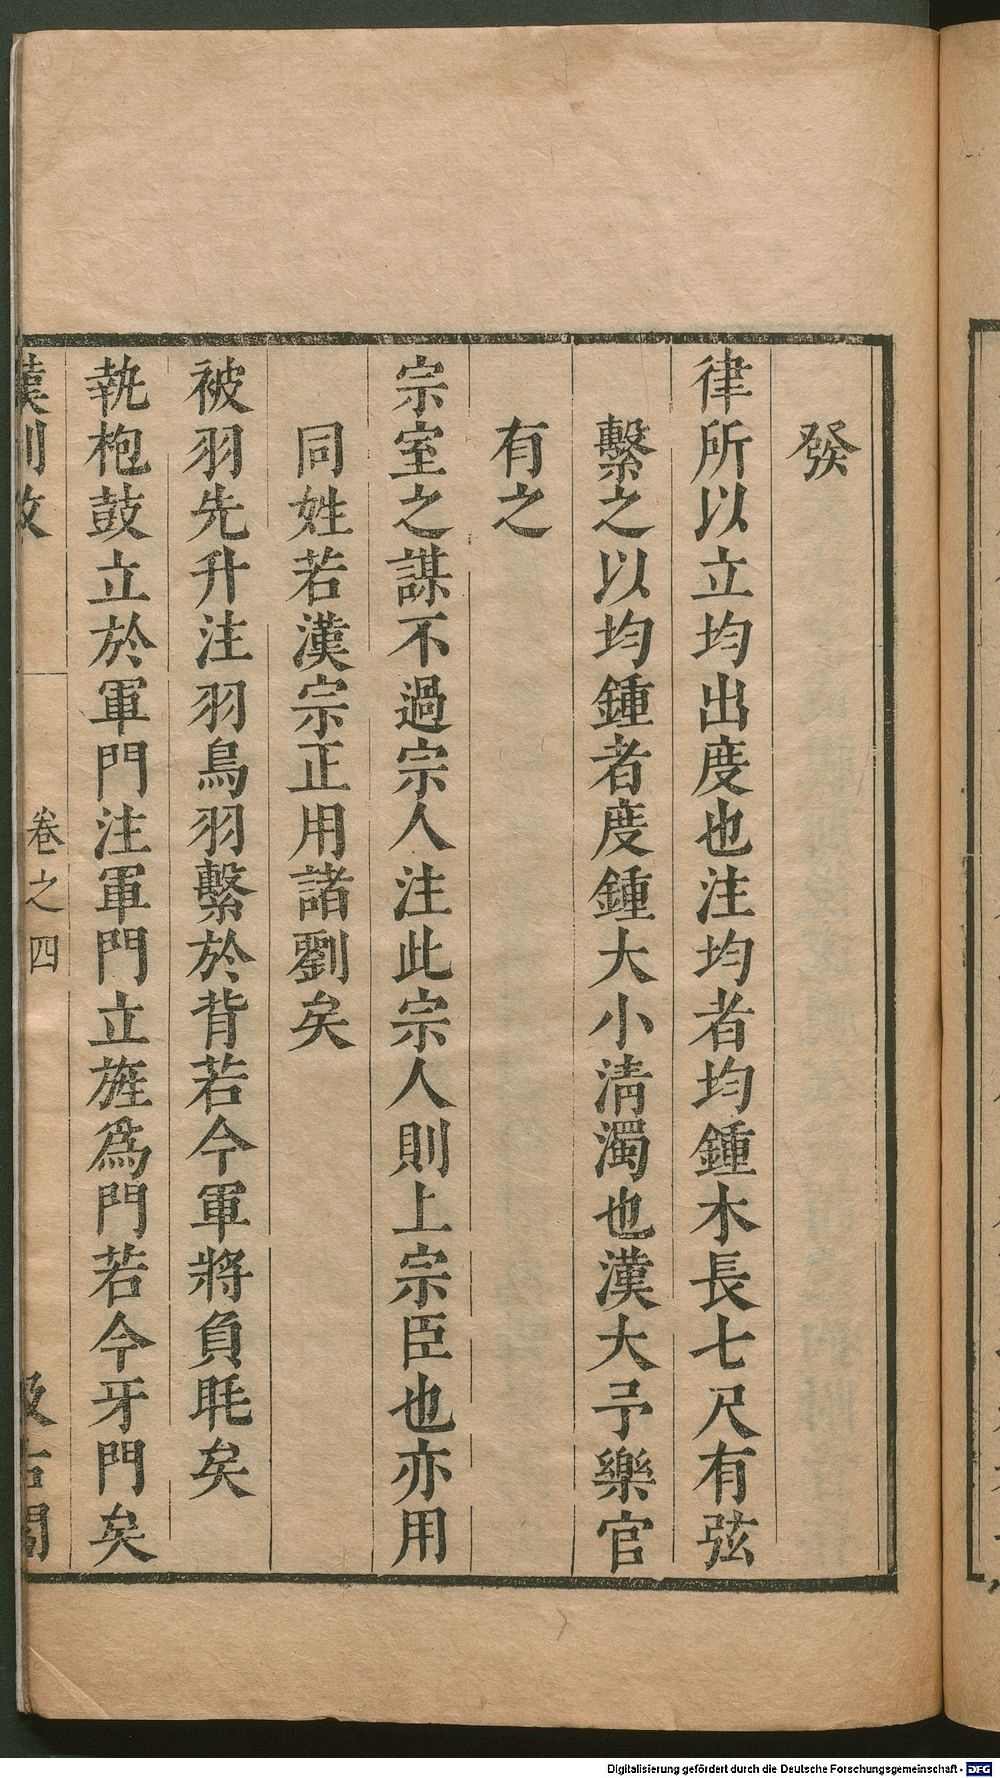 發
律所以立均出度也注均者均鍾木長七尺有弦
繫之以均鍾者度鍾大小清濁也漢大予樂官
有之
宗室之謀不過宗人注此宗人則上宗臣也亦用
同姓若漢宗正用諸劉矣
被羽先升注羽鳥羽繫於背若今軍將負毦矣
執枹鼓立於軍門注軍門立旌爲門若今牙門矣
漢制攷 卷之四 汲古閣
Digitalisierung gefördert durch die Deutsche Forschungsgemeinschaft - DFG